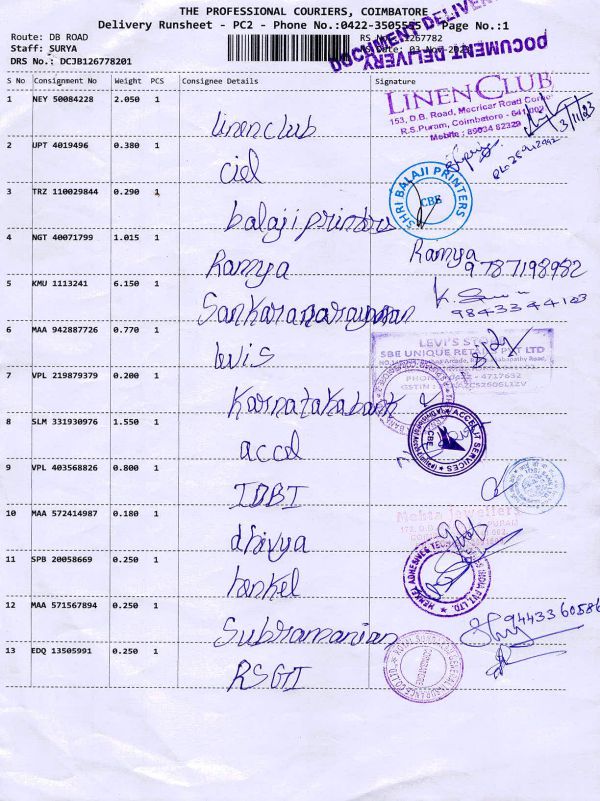 THE PROFESSIONAL COURIERS, COIMBATORE
Delivery Runsheet - PC2 - Phone No.:0422-3505555 Page No.:1
DOCUMENT DELIVERY
DOCUMENT DELIVERY
Route: DB ROAD
Staff: SURYA
DRS No.: DCJB126778201
S No Consignment No Weight PCS Consignee Details Signature
1 NEY 50084228 2.050 1
linenclub
LINENCLUB
153, D.B. Road, Mecricar Road Corner
R.S.Puram, Coimbatore - 641002
Mobile : 89034 82329
3/11/23
2 UPT 4019496 0.380 1
ciel
3 TRZ 110029844 0.290 1
balajiprinters
SHRI BALAJI PRINTERS
CBE
4 NGT 40071799 1.015 1
Ramya
Ramya
9787198982
5 KMU 1113241 6.150 1
Sankaranarayanan
6 MAA 942887726 0.770 1
levis
LEVI'S
SBE UNIQUE RETAIL PVT LTD
7 VPL 219879379 0.200 1
Karnatakabank
8 SLM 331930976 1.550 1
accel
ACCEL IT SERVICES
CBE
9 VPL 403568826 0.800 1
IDBI
10 MAA 572414987 0.180 1
dhivya
Mehta Jewellers
11 SPB 20058669 0.250 1
henkel
HENKEL ADHESIVES TECH INDIA PVT LTD.
12 MAA 571567894 0.250 1
Subramanian
9443360586
13 EDQ 13505991 0.250 1
RSGI